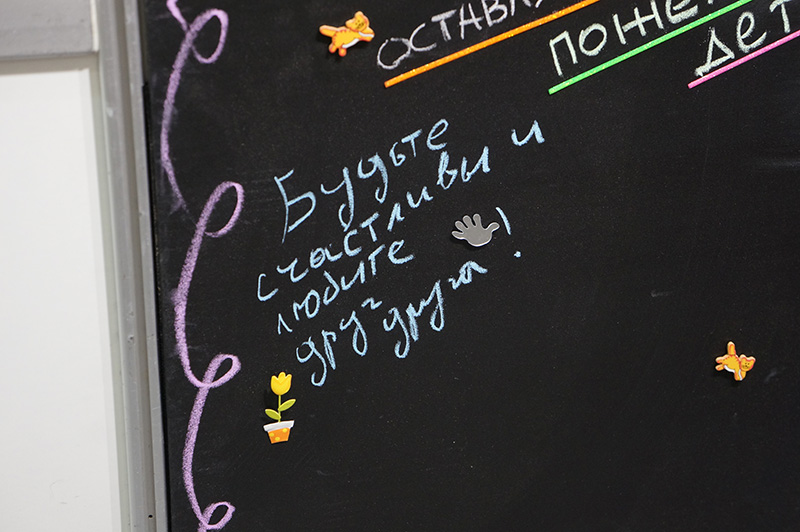 ОСТАВЛ
ПОЖЕ
ДЕТ
Будьте
счастливы и
любите
друг друга!